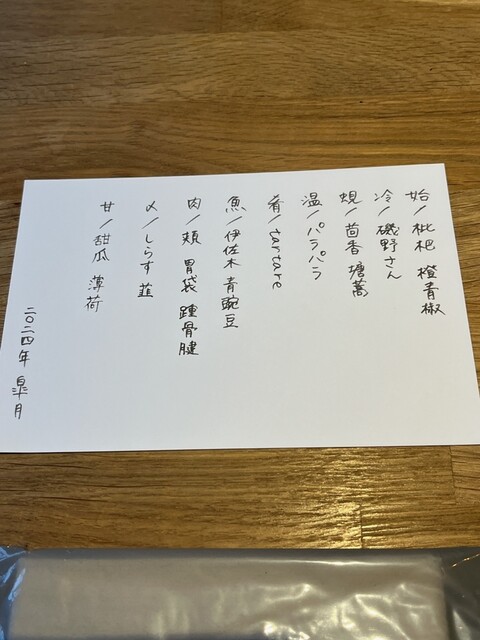 始／枇杷 橙青椒
冷／磯野さん
蜆／茴香 塘蒿
温／パラパラ
肴／tartare
魚／伊佐木 青豌豆
肉／頬 胃袋 踵骨腱
〆／しらす 韮
甘／甜瓜 薄荷
二〇二四年 皐月